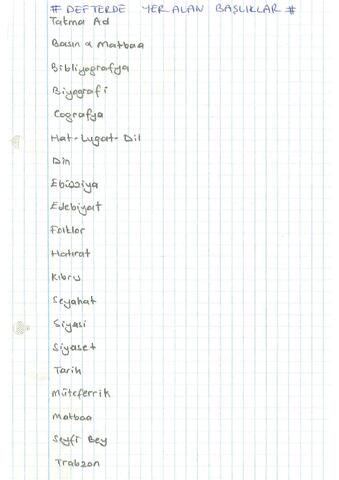 # DEFTERDE YER ALAN BAŞLIKLAR #
Tatma Ad
Basın & Matbaa
Bibliyografya
Biyografi
Coğrafya
Hat-Lugat-Dil
Din
Ebüzziya
Edebiyat
Folklor
Hatırat
Kıbrıs
Seyahat
Siyasi
Siyaset
Tarih
Müteferrik
Matbaa
Seyfi Bey
Trabzon